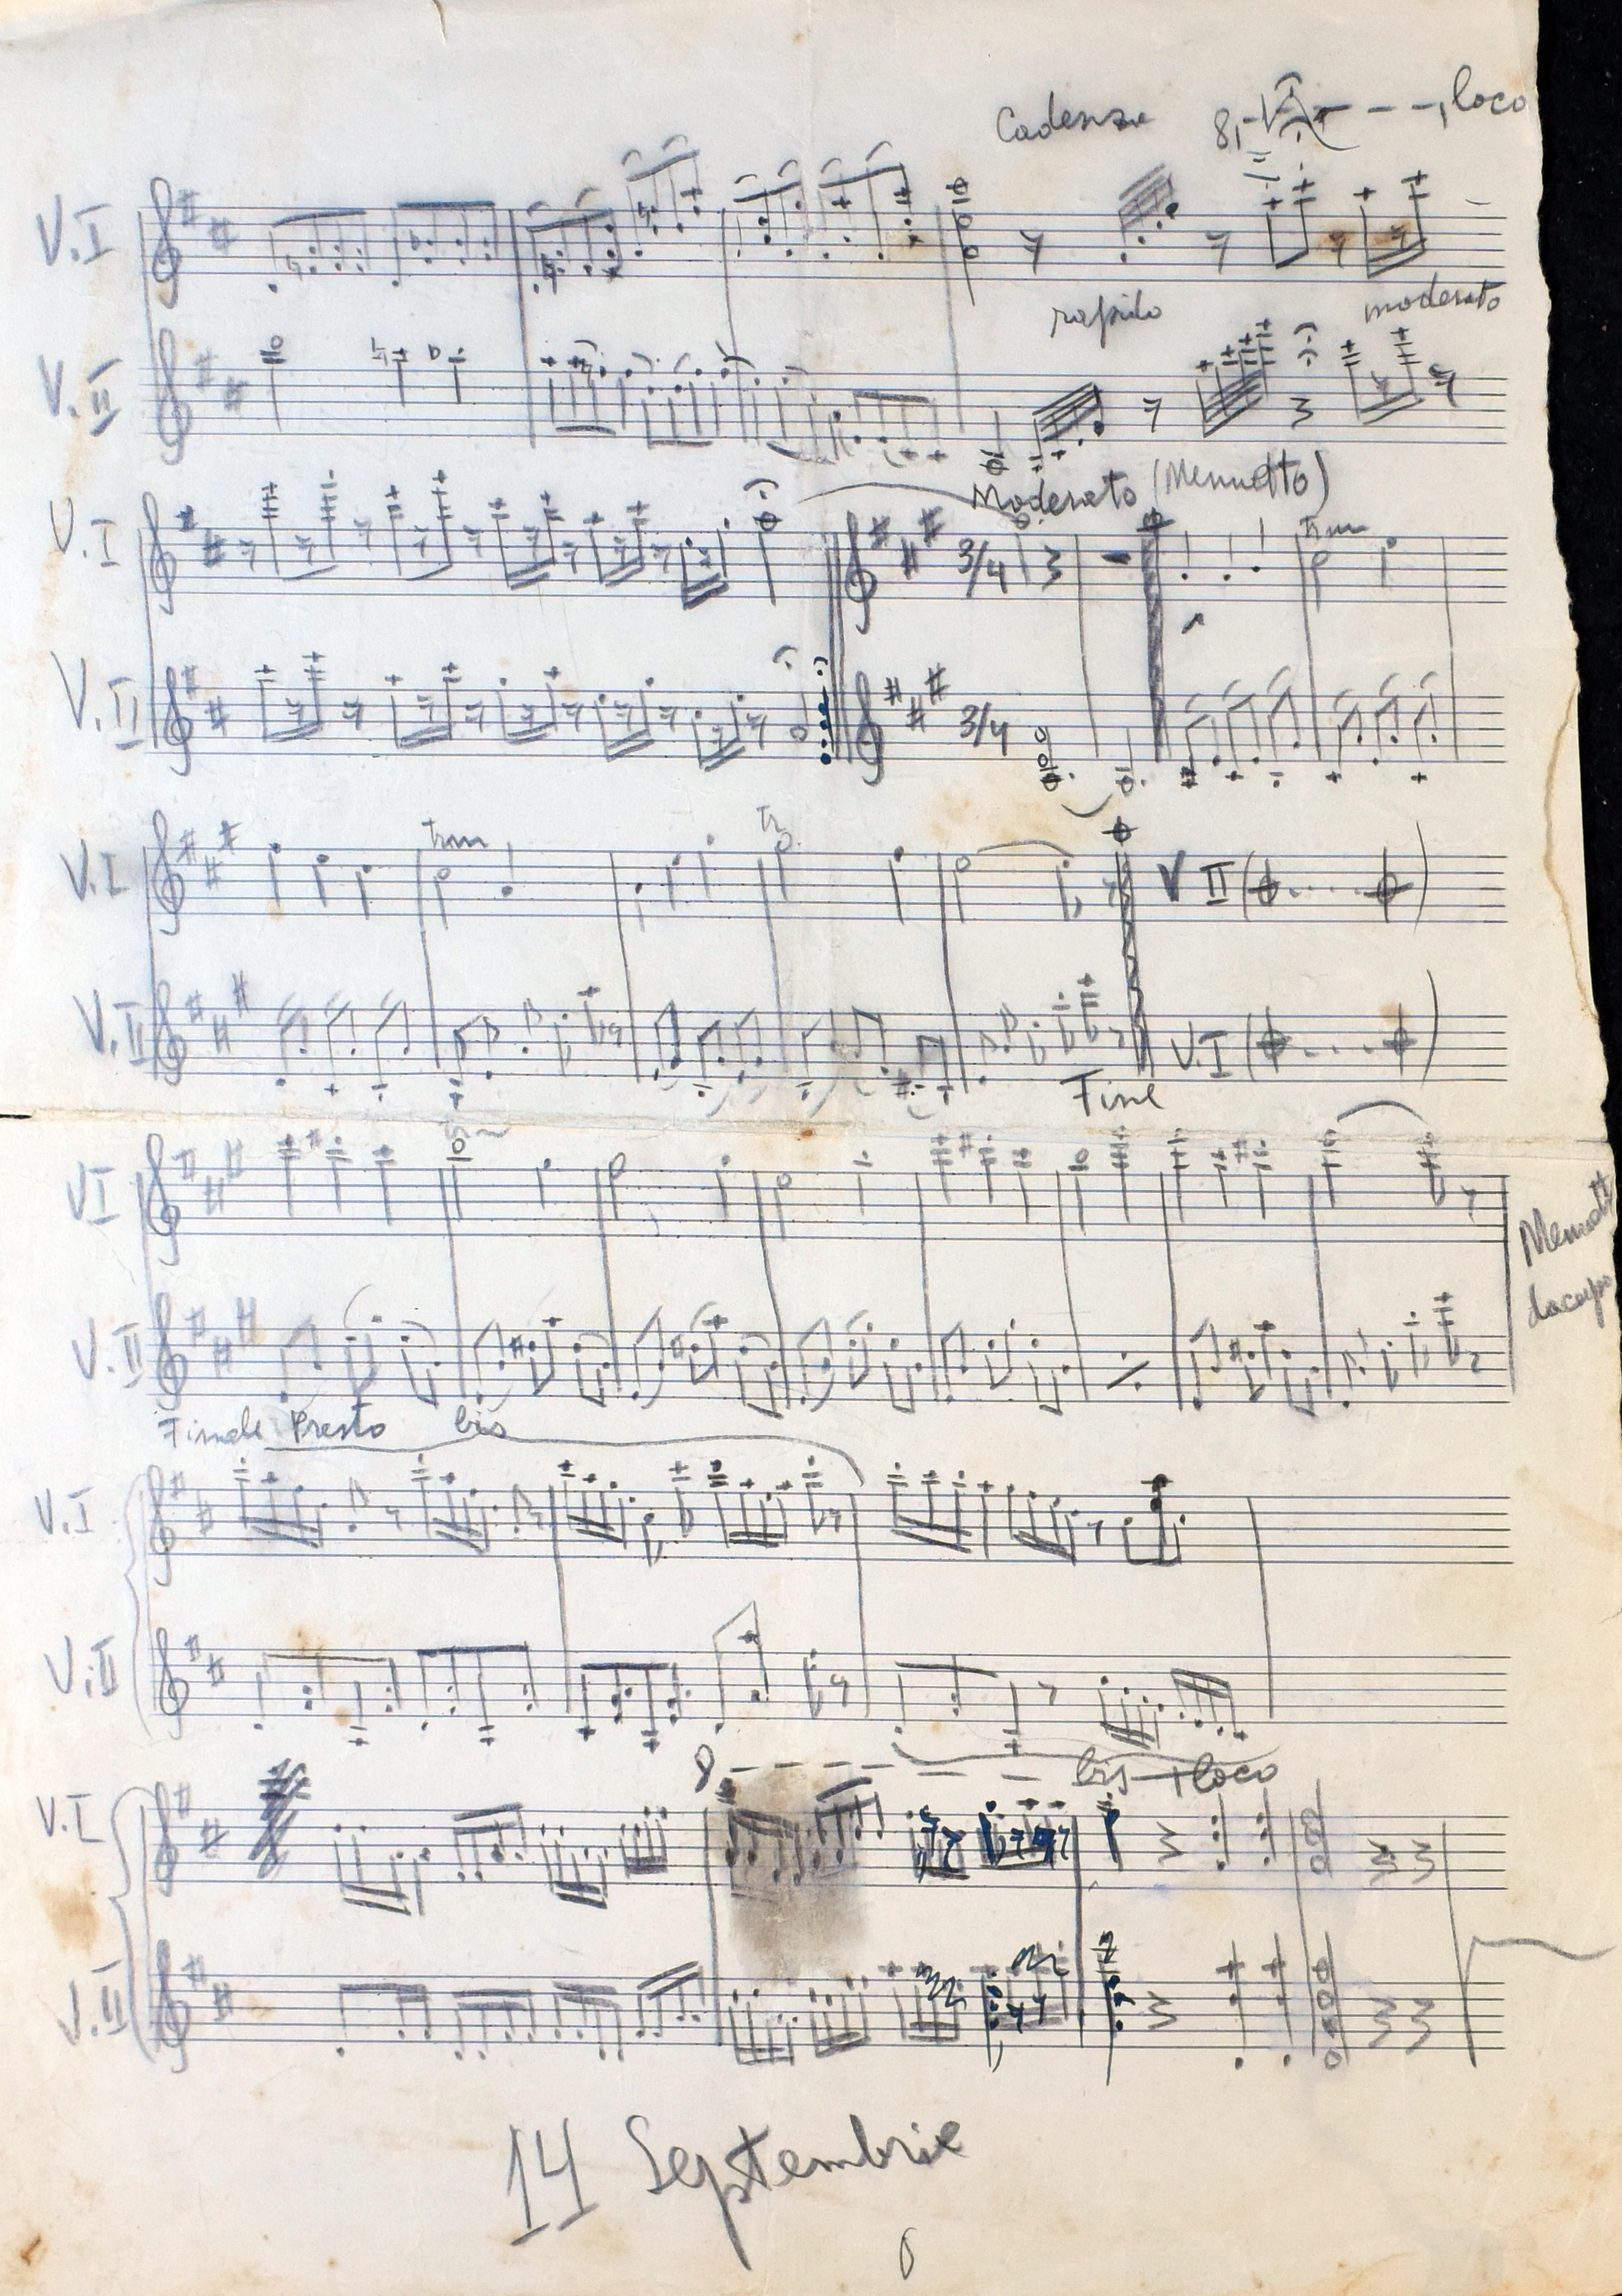 Cadenza 8, - - - -, loco
V.I
rapido moderato
V.II
Moderato (Menuetto)
V.I 3/4
trm
V.II 3/4
V.I trm tr V II ( . . . . )
V.II V.I ( . . . . )
Fine
V I tr
V.II
Menuett
dacapo
Finale Presto bis
V.I
V.II
8 - - - - - - bis loco
V.I
V.II
14 Septembrie